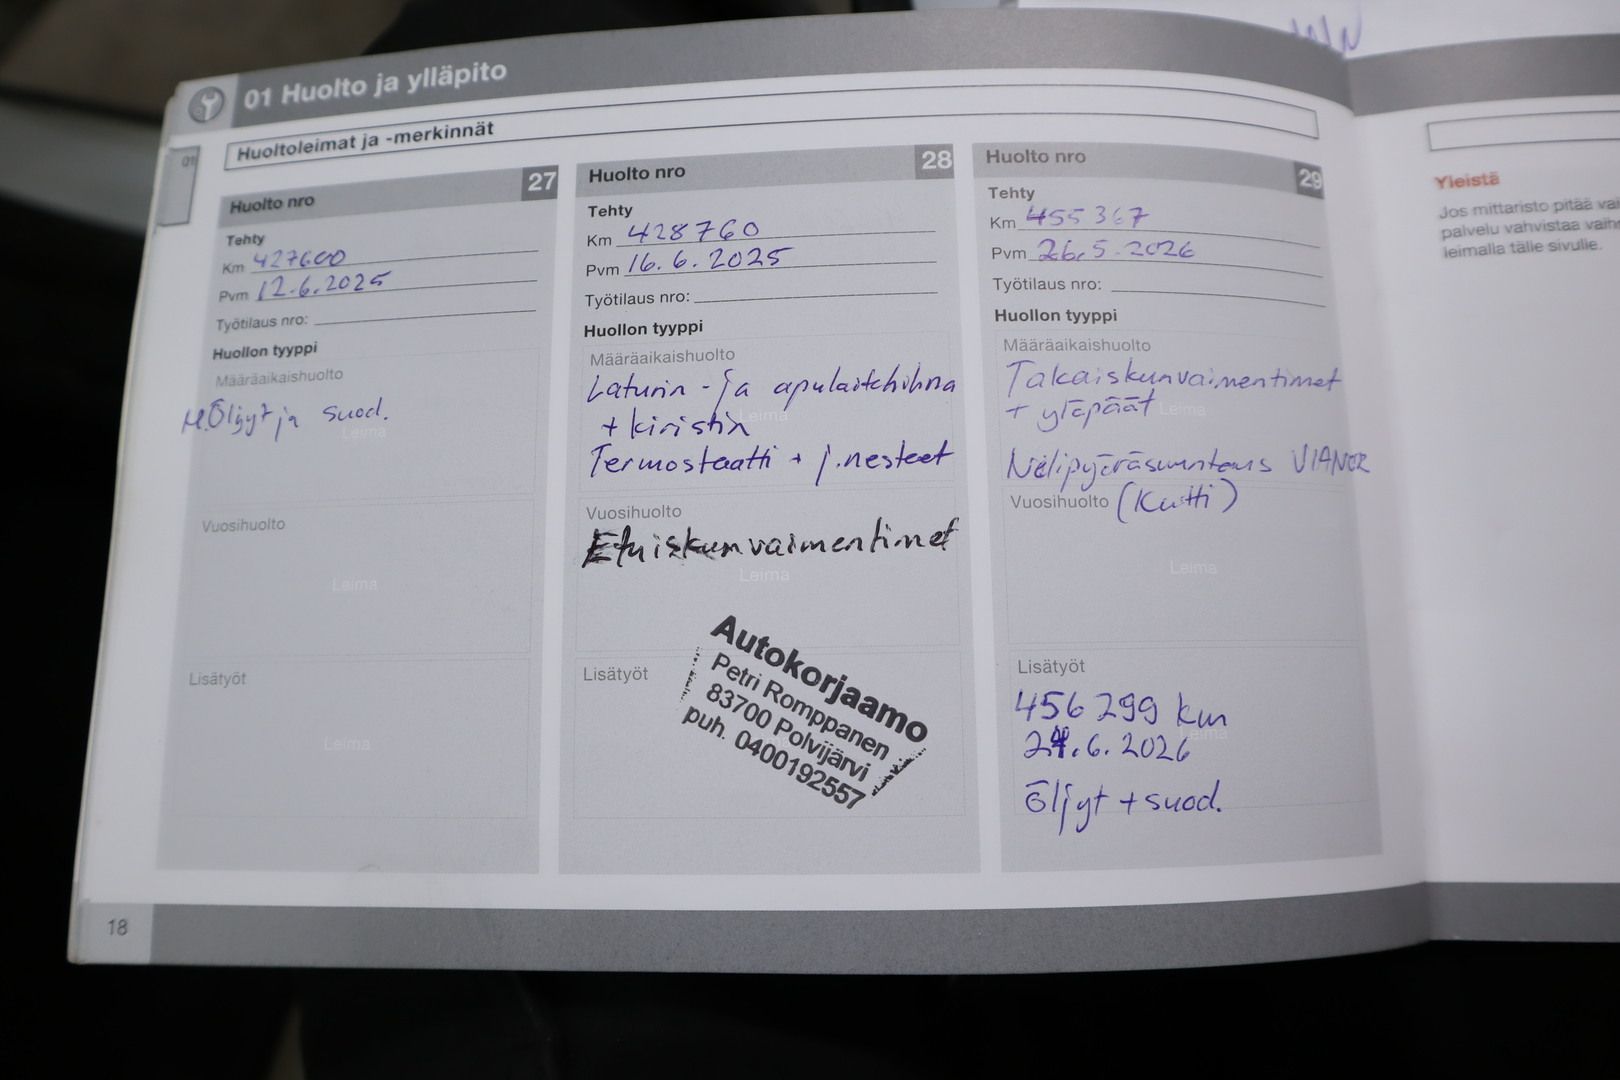 01 Huolto ja ylläpito
Huoltoleimat ja -merkinnät
01
Huolto nro 27
Tehty
Km 427600
Pvm 12.6.2025
Työtilaus nro:
Huollon tyyppi
Määräaikaishuolto
M.Öljyt ja suod.
Leima
Vuosihuolto
Leima
Lisätyöt
Leima
Huolto nro 28
Tehty
Km 428760
Pvm 16.6.2025
Työtilaus nro:
Huollon tyyppi
Määräaikaishuolto
Laturin - ja apulaitehihna
Leima
+ kiristin
Termostaatti + j.nesteet
Vuosihuolto
Etuiskunvaimentimet
Leima
Lisätyöt
Autokorjaamo
Petri Romppanen
83700 Polvijärvi
puh. 0400192557
Huolto nro 29
Tehty
Km 455367
Pvm 26.5.2026
Työtilaus nro:
Huollon tyyppi
Määräaikaishuolto
Takaiskunvaimentimet
+ yläpäät
Leima
Nelipyöräsuuntaus VIANOR
Vuosihuolto (Kutti)
Leima
Lisätyöt
456 299 km
Leima
24.6.2026
Öljyt + suod.
18
Yleistä
Jos mittaristo pitää
palvelu vahvistaa
leimalla tälle sivulle.